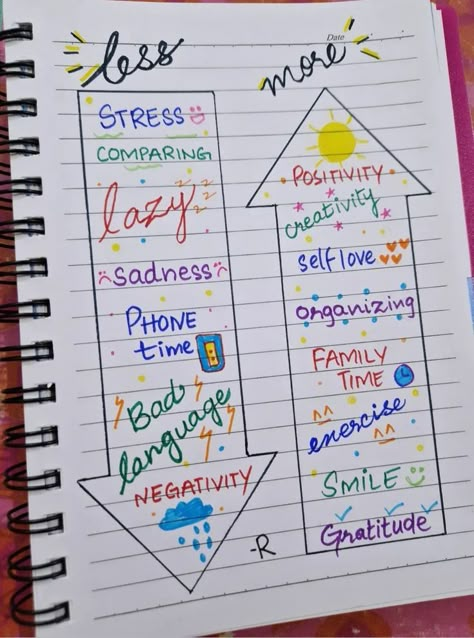 less
STRESS
COMPARING
lazy
zzz
sadness
PHONE
time
Bad
language
NEGATIVITY
Date
more
POSITIVITY
creativity
self love
organizing
FAMILY
TIME
exercise
SMILE
Gratitude
-R